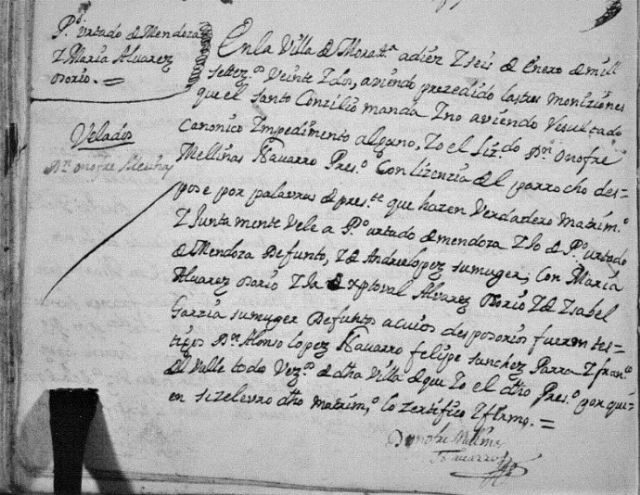 P.º urtado de Mendoza
Y Maria Alvarez
osorio. =
Velados
En la Villa de Morat.ª a diez Y seis de Enero de mill
setez.ºs Veinte Y dos, aviendo prezedido las tres moniziones
que el Santo Conzilio manda Y no aviendo Resultado
canonico Ympedimento alguno, Yo el Liz.do D.n Onofre
Mellinas Navarro Pres.º Con lizenzia del parrocho des-
pose por palavras de pres.te que hazen Verdadero matrim.º
Y Juntamente Vele a P.º urtado de mendoza Yjo de P.º urtado
de Mendoza Defunto, Y de Andrea lopez su muger; con Maria
Alvarez osorio Yja de Xptoval Alvarez osorio Y de Ysabel
Garzia su muger Defuntos a cuios desposorios fueron tes-
tigos D.n Alonso Lopez Navarro felipe sanchez Parra Y fran.co
del Valle todo Vez.os de dha Villa de que Yo el dho Pres.º por qui-
en se zelevro dho matrim.º lo zertifico Y firmo. =
Onofre Mellinas
Navarro